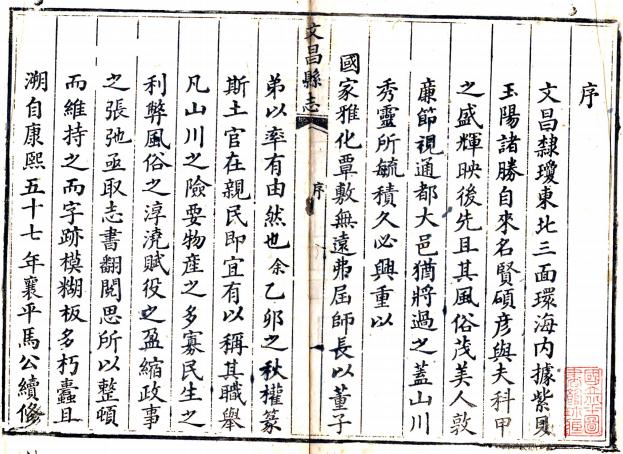 序
文昌隸瓊東北三面環海內據紫貝
玉陽諸勝自來名賢碩彥與夫科甲
之盛輝映後先且其風俗茂美人敦
廉節視通都大邑猶將過之蓋山川
秀靈所毓積久必興重以
國家雅化覃敷無遠弗屆師長以董子
文昌縣志
序
弟以率有由然也余乙卯之秋權篆
斯土官在親民即宜有以稱其職舉
凡山川之險要物產之多寡民生之
利弊風俗之淳澆賦役之盈縮政事
之張弛亟取志書翻閱思所以整頓
而維持之而字跡模糊板多朽蠹且
溯自康熙五十七年襄平馬公續修